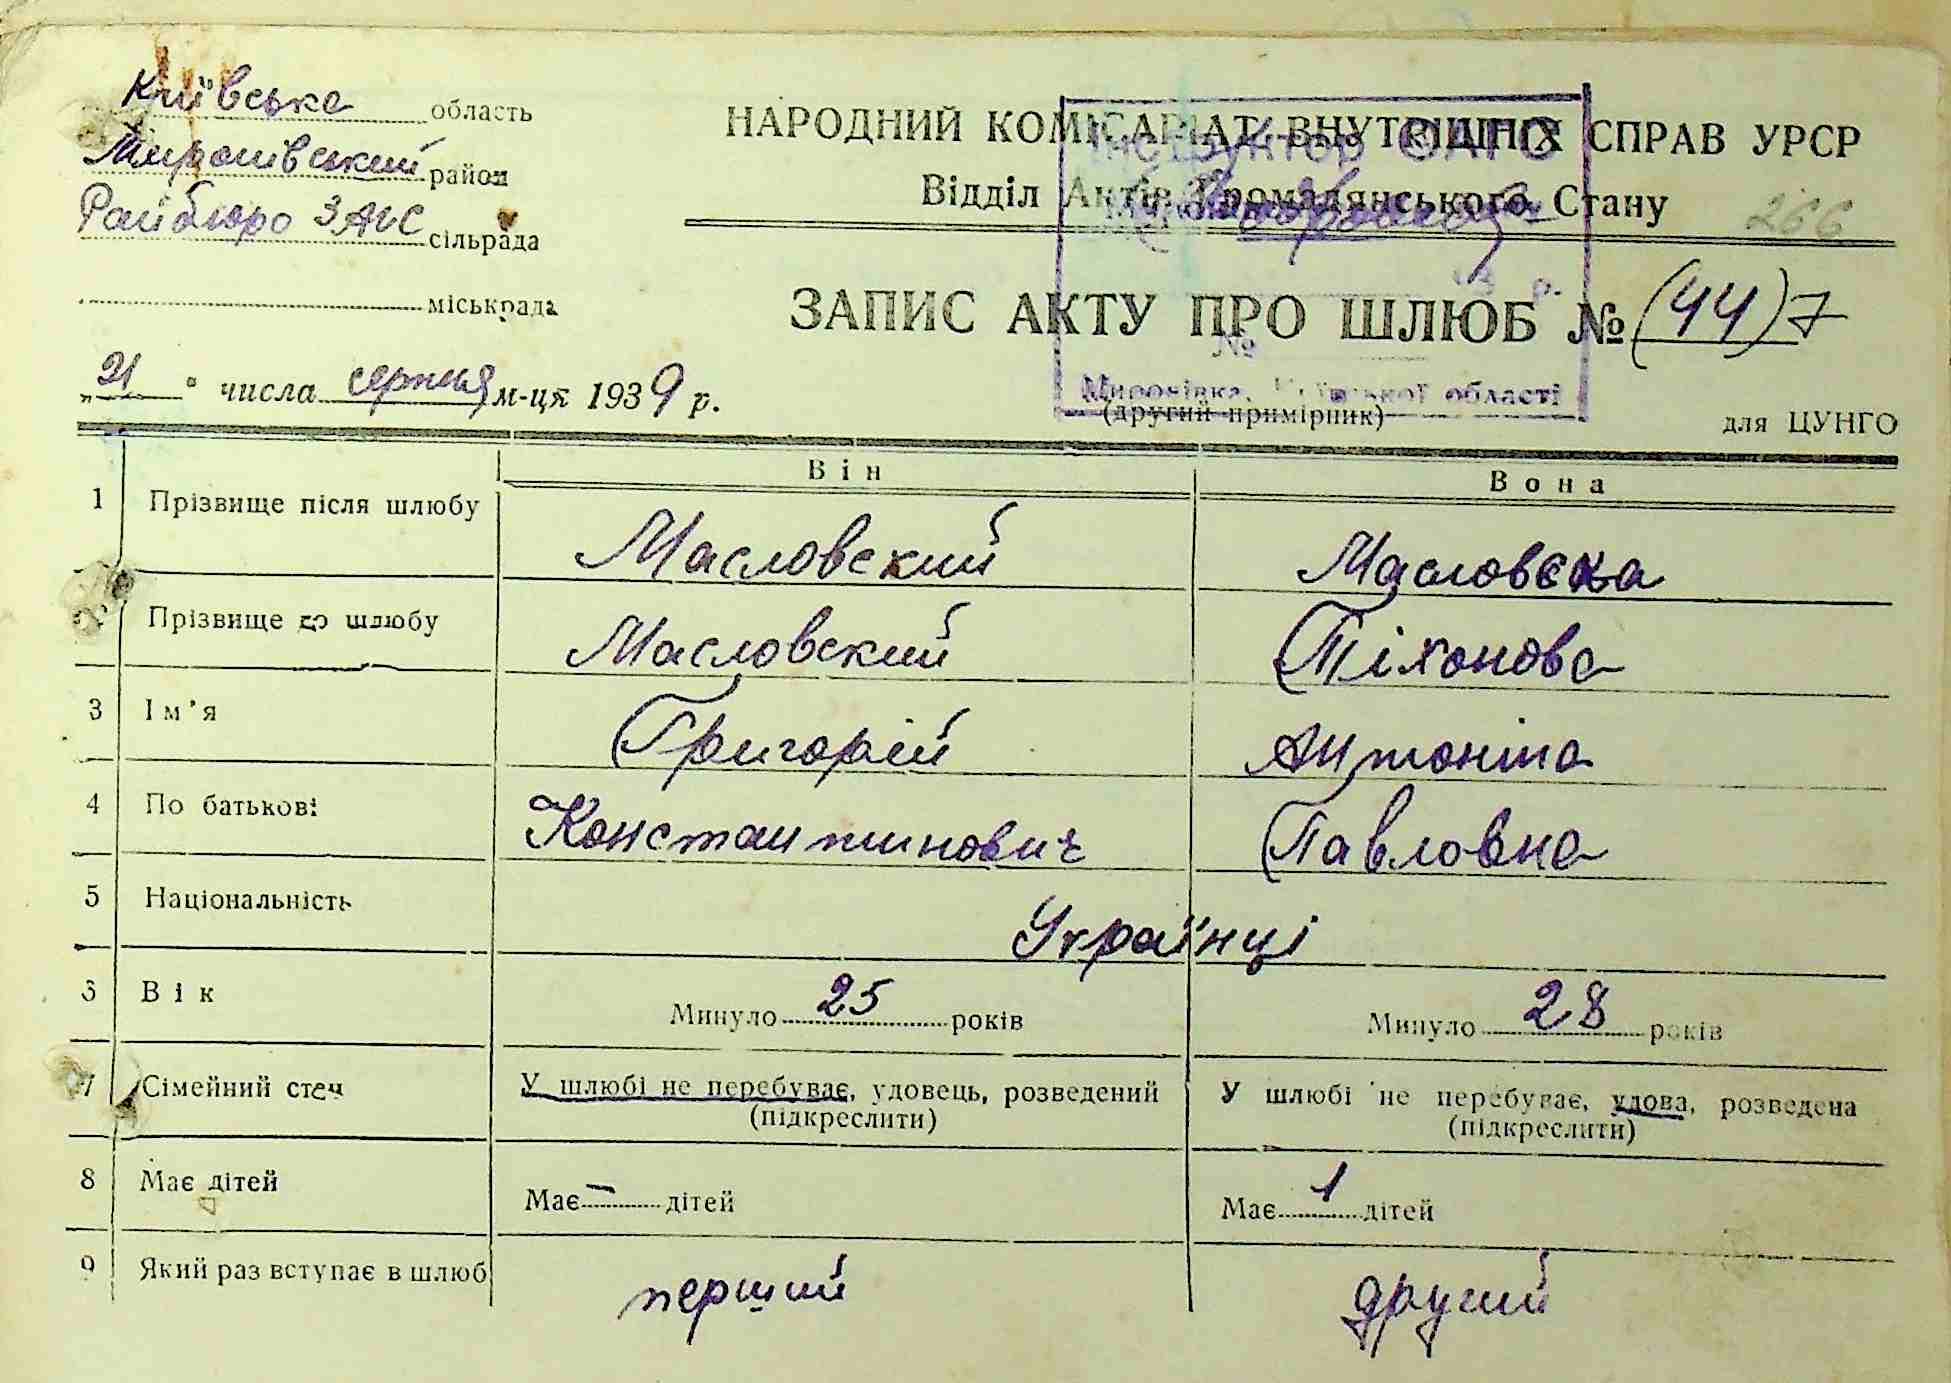 Київська область
Миронівський район
Райбюро ЗАГС сільрада
міськрада
НАРОДНИЙ КОМІСАРІАТ ВНУТРІШНІХ СПРАВ УРСР
Відділ Актів Громадянського Стану
266
Інструктор ОАГО
ЗАПИС АКТУ ПРО ШЛЮБ № (44) 7
№
Миронівка, Київської області
„21" числа серпня м-ця 1939 р.
(другий примірник)
для ЦУНГО
Він Вона
1 Прізвище після шлюбу Масловский Масловска
2 Прізвище до шлюбу Масловский Тіхонова
3 Ім'я Григорій Антоніна
4 По батькові Константинович Павловна
5 Національність Українці
6 Вік Минуло 25 років Минуло 28 років
7 Сімейний стан У шлюбі не перебуває, удовець, розведений У шлюбі не перебуває, удова, розведена
(підкреслити) (підкреслити)
8 Має дітей Має – дітей Має 1 дітей
9 Який раз вступає в шлюб перший другий